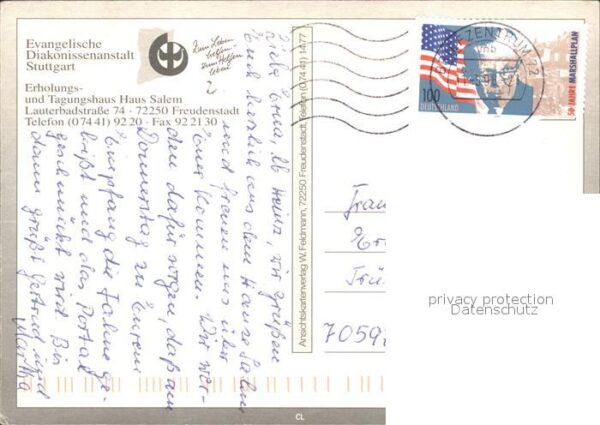 Evangelische
Diakonissenanstalt
Stuttgart
Zum Leben
helfen -
zum Helfen
leben
Erholungs-
und Tagungshaus Haus Salem
Lauterbadstraße 74 · 72250 Freudenstadt
Telefon (0 74 41) 92 20 · Fax 92 21 30
Liebe Erna, lb Heinz, wir grüßen
Euch herzlich aus dem Hause Salem
und freuen uns über
Euer Kommen. Wir wer-
den dafür sorgen, daß am
Donnerstag zu Eurem
Empfang die Fahne ge-
hißt und das Portal
geschmückt wird. Bis
dann grüßt Gertrud und
Martha
Ansichtskartenverlag W. Feldmann, 72250 Freudenstadt, Telefon (0 74 41) 14 77
BRIEFZENTRUM 72
100
DEUTSCHLAND
50 JAHRE MARSHALLPLAN
Frau
7059
privacy protection
Datenschutz
CL